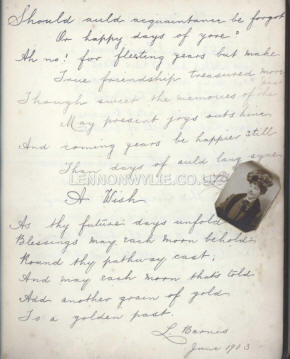 Should auld acquaintance be forgot
Or happy days of yore?
Ah no! for fleeting years but make
True friendship treasured more
Though sweet the memories of the
May present joys outshine
And coming years be happier still
Than days of auld lang syne
LENNONWYLIE.CO.UK
A Wish
As thy future days unfold
Blessings may each moon behold
Round thy pathway cast;
And may each moon thats told
Add another grain of gold
To a golden past.
L. Barnes
June 1903